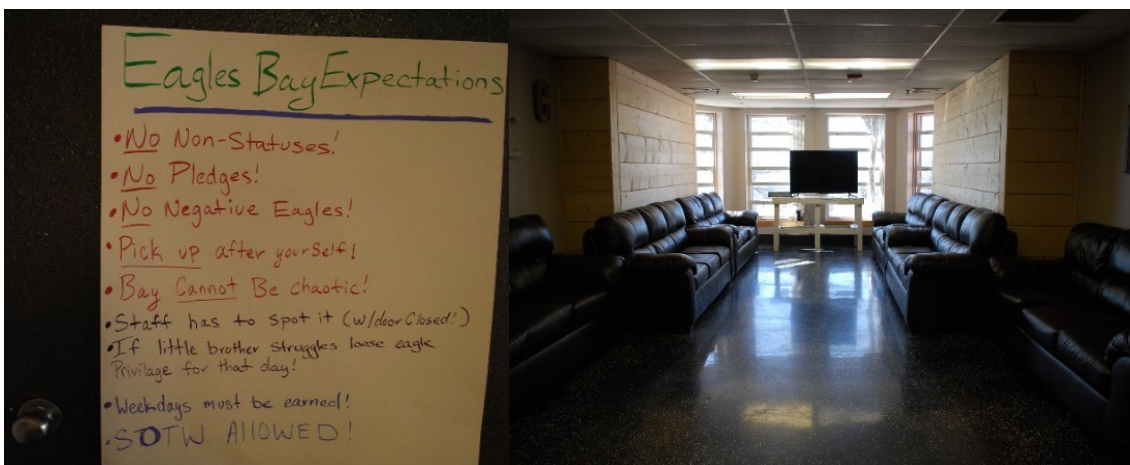 Eagles Bay Expectations
• No Non-Statuses!
• No Pledges!
• No Negative Eagles!
• Pick up after yourself!
• Bay Cannot Be chaotic!
• Staff has to spot it (w/door Closed!)
• If little brother struggles loose eagle
Privilage for that day!
• Weekdays must be earned!
• SOTW AllOWED!